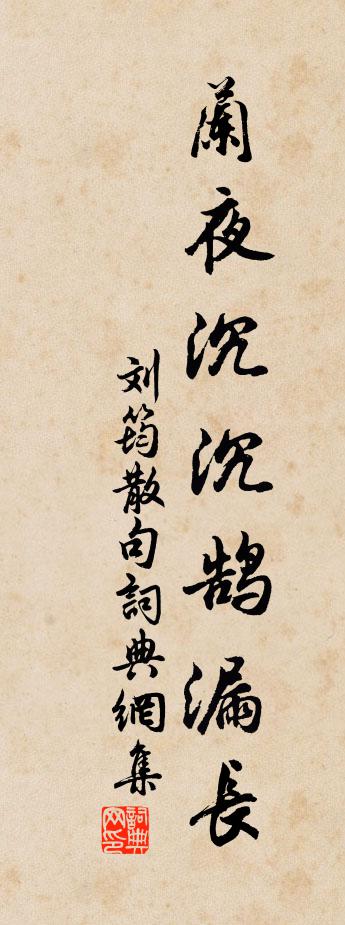 蘭夜沉沉鹄漏長
刘筠散句詞典網集
詞典网印